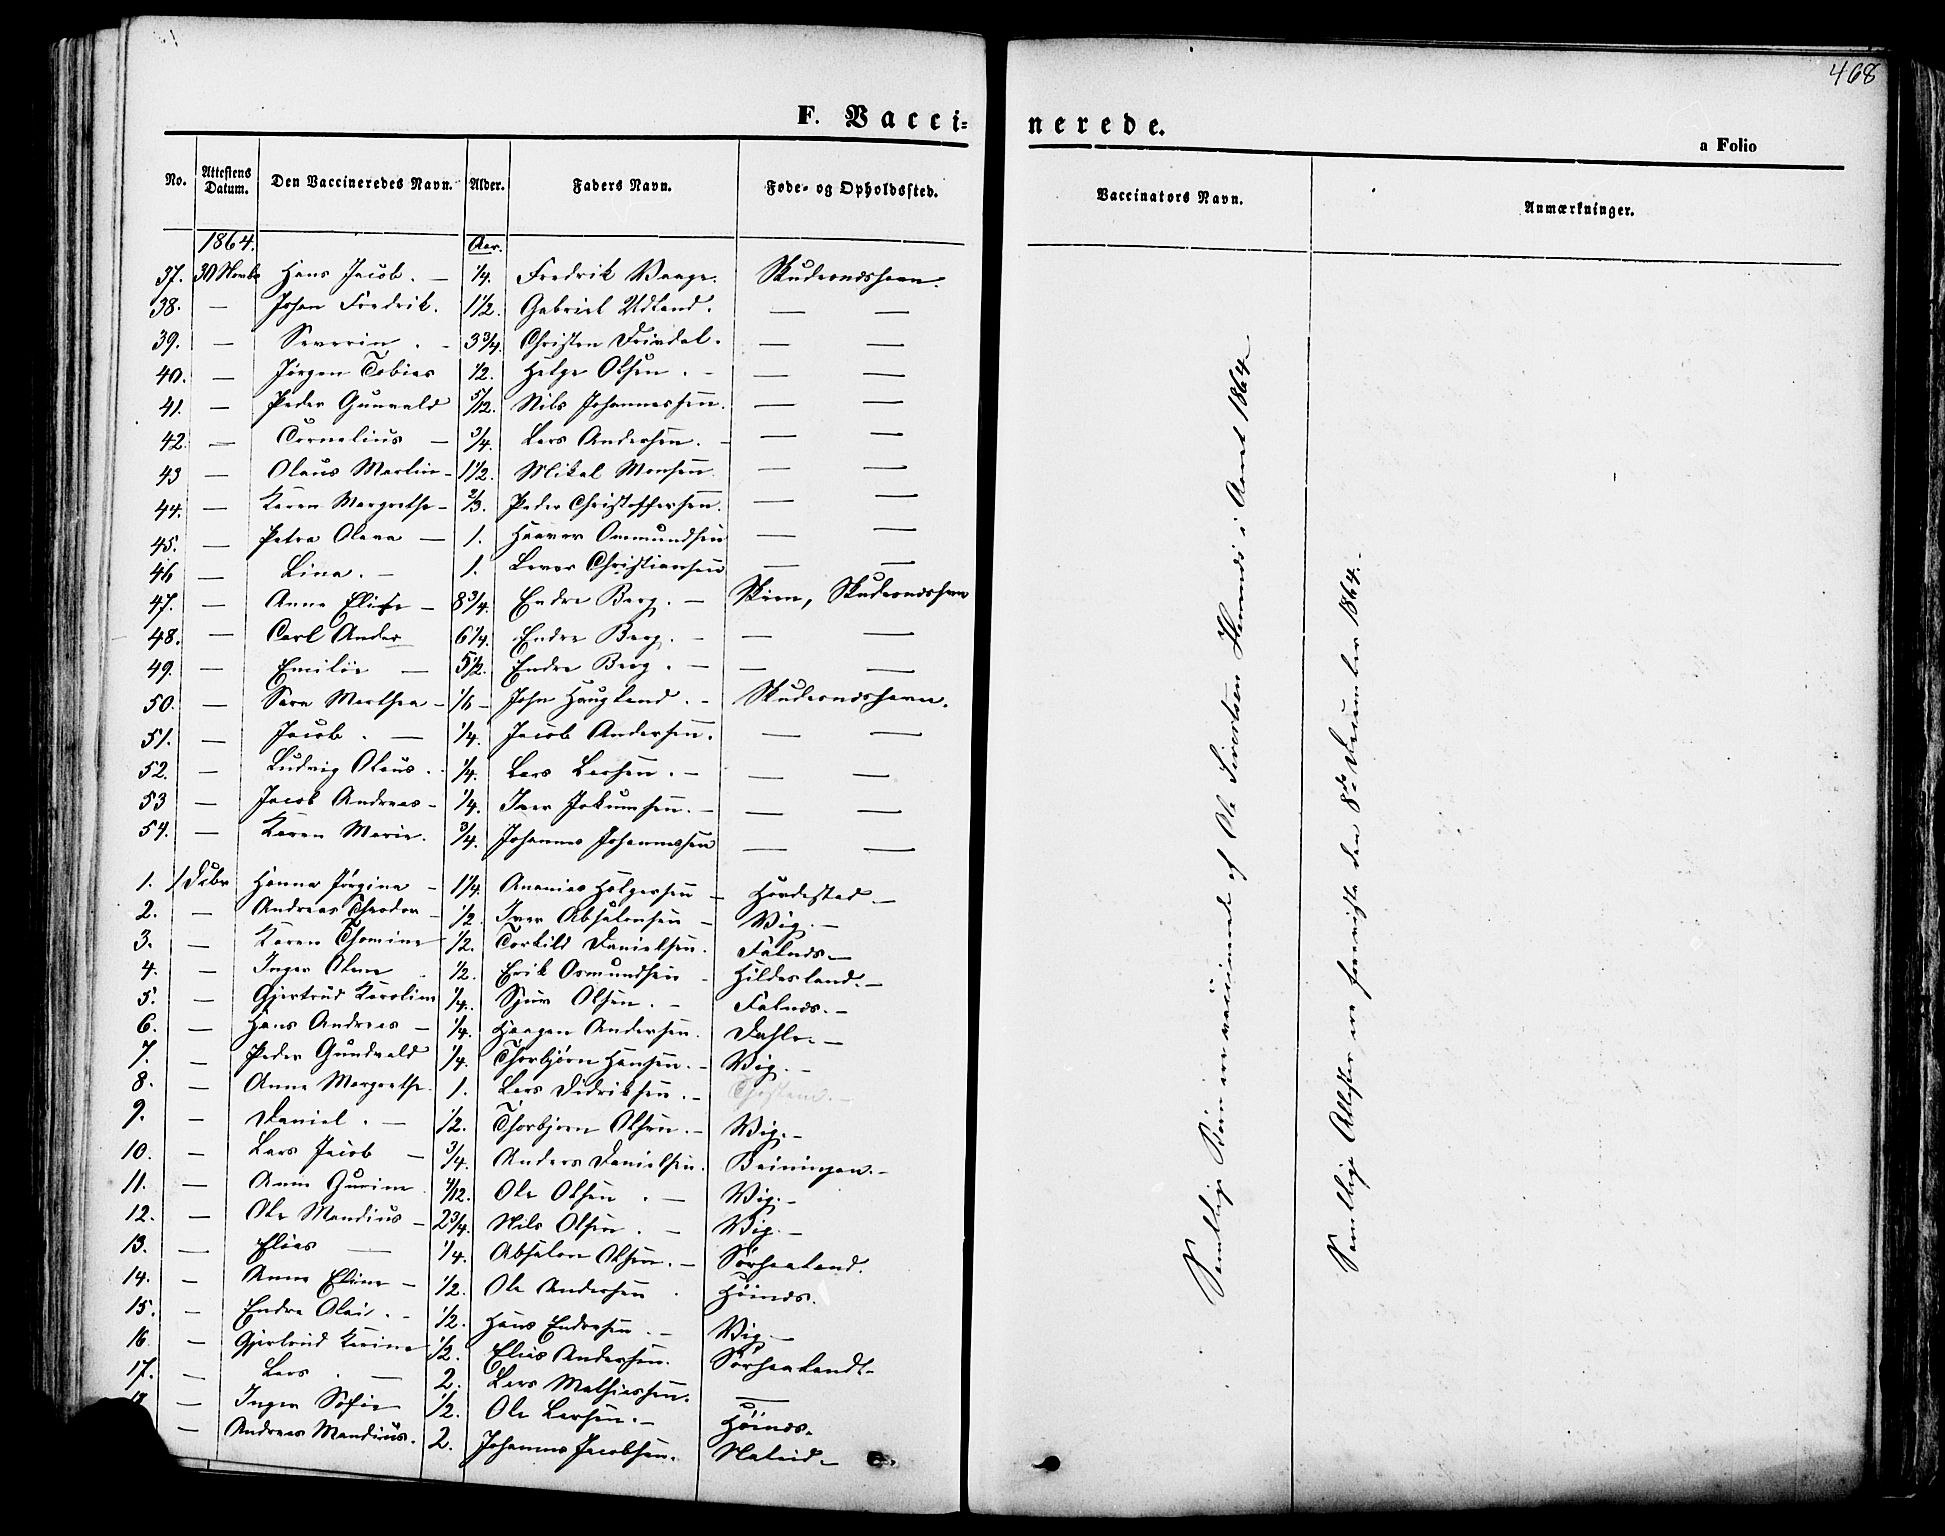 468
F. Vaccinerede.
a Folio
No. Attestens Datum. Den Vaccineredes Navn. Alder. Faders Navn. Føde- og Opholdssted. Vaccinators Navn. Anmærkninger.
1864. Aar.
37. 30 Novbr Hans Jacob. — 1/4. Fredrik Waage. Skudesnæshavn.
38. — Johan Fredrik. 1 1/2. Gabriel Udland. — —
39. — Severin. - 3 3/4. Christen — —
40. — Jørgen Tobias 1/2. Helge Olsen. - — —
41. — Peder Gunvald 5/12. Nils Johannessen. — —
42. — Cornelius — 3/4. Lars Andersen. - — —
43 — Olaus Martin - 1 1/2. Mikal Monsen. — —
44. — Karen Margrethe - 2/3. Peder Christoffersen. — —
45. — Petra Olena — 1. Haaver Ommundsen — —
46 — Lina. - 1. Christiansen — —
47. — Anne Elise - 8 3/4. Endre Berg. — Skien, Skudesnæshavn
48. — Carl Ander 6 1/4. Endre Berg. - — —
49. — Emilie — 5 1/2. Endre Berg. - — —
50. — Sara Marthea - 1/6 - John Haugland. - Skudesnæshavn.
51. — Jacob. — 1/4. Jacob Andersen. — —
52. — Ludvig Olaus. 1/4. Lars Larsen. - — —
53 — Jacob Andreas - 1/4. Iver Jokumsen. - — —
54. — Karen Marie. 3/4. Johannes Johannessen — —
1. 1 Decbr Hanna Jørgine - 1 1/4. Ananias Holgersen - Hovdestad. -
2. — Andreas Theodor - 1/2. Iver Absalonsen - Wig. -
3. — Karen Thomine 1/2. Torkild Danielsen. Falnæs. -
4. — Inger Olene 1/2. Erik Osmundsen - Hildesland. -
5. — Gjertrud Karoline 1/4. Sjur Olsen. - Falnæs. -
6. — Hans Andreas - 1/4. Haagen Andersen. Dahle. -
7. — Peder Gundvald 1/4. Thorbjørn Hansen. - Wig. -
8. — Anne Margrethe. 1. Lars Didriksen. -
9. — Daniel. - 1/2. Thorbjørn Olsen. - Wig. -
10. — Lars Jacob - 3/4. Anders Danielsen. Beiningen. -
11. — Anne Gurine 4/12. Ole Olsen. - Wig. -
12. — Ole Mandius - 2 3/4. Nils Olsen. - Wig. -
13. — Elias — 1/4. Absalon Olsen. - Sørhaaland.
14. — Anne Eline - 1/2. Ole Andersen. Høinæs.
15. — Endre Olai. - 1/2. Hans Endresen. - Wig. -
16 — Gjertrud Karine 1/2. Elias Andersen. Sørhaaland. -
17. — Lars. — 2. Lars Mathiassen. —
18 — Inger Sofie 1/2. Ole Larsen. - Høinæs.
— Andreas Mandius. 2. Johannes Jacobsen.
Samtlige Børn ere vaccinerede af Ole Sivertsen Hemnæs i Aaret 1864
Samtlige Attester ere foreviste den 8de December 1864. -